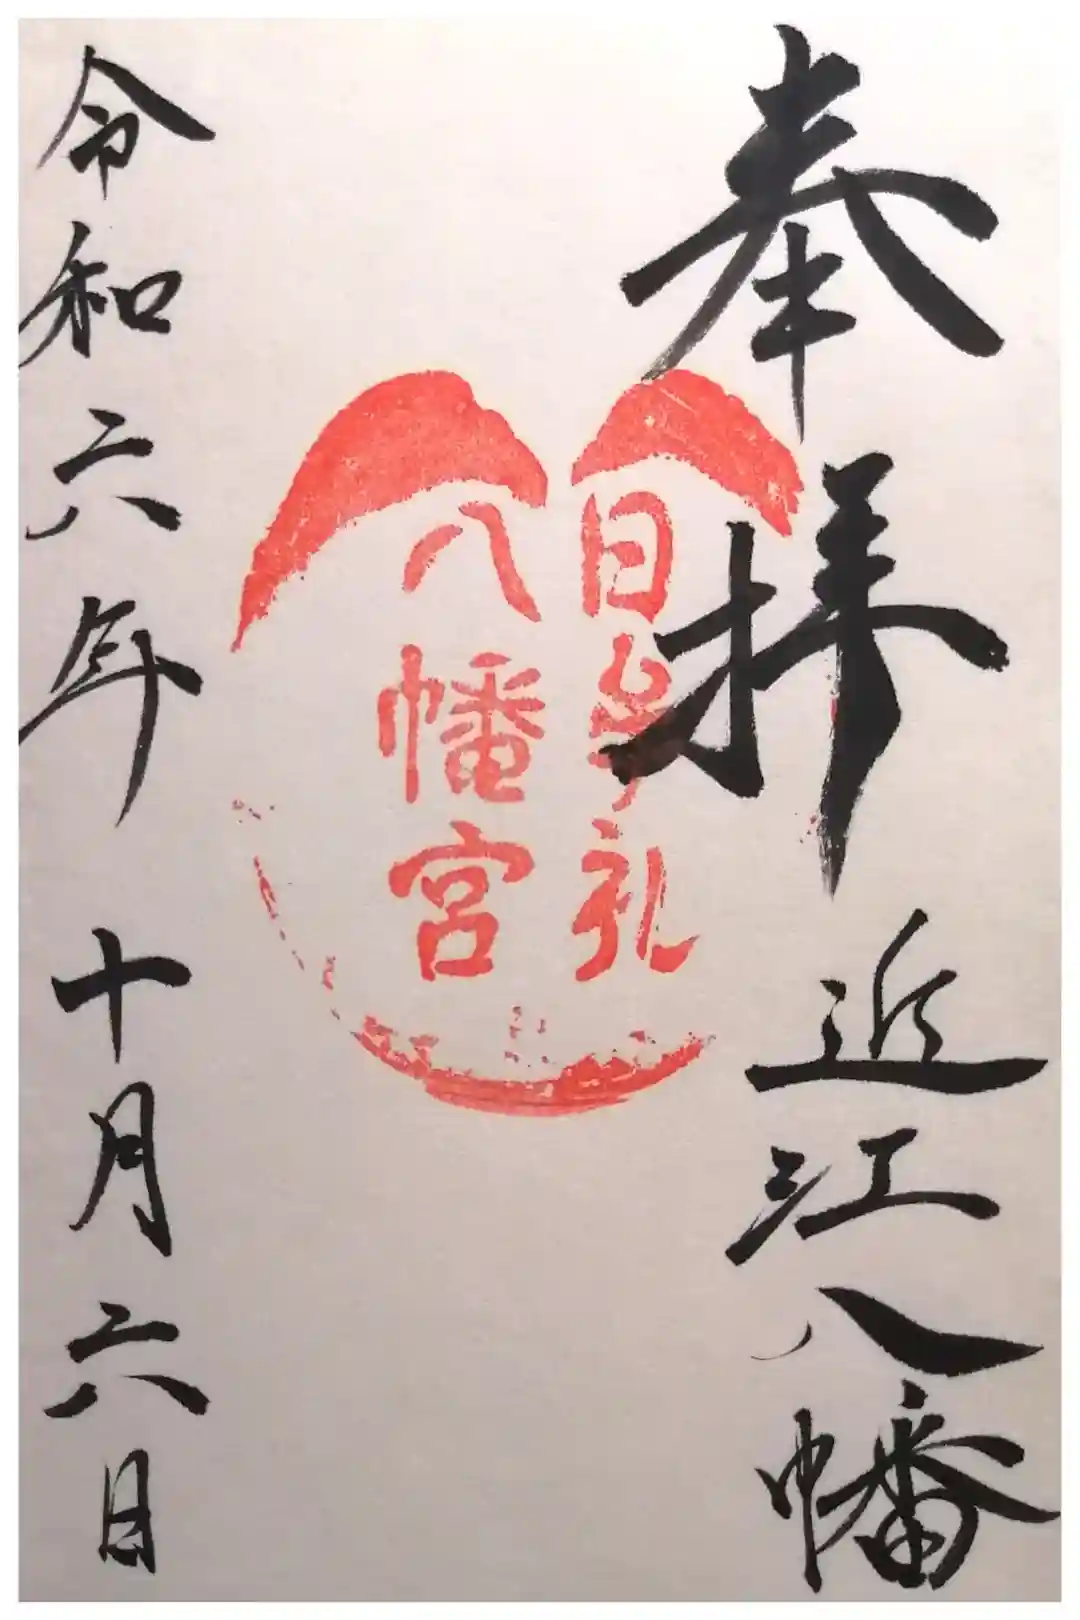 奉拝
近江八幡
日牟礼
八幡宮
令和六年
十月六日